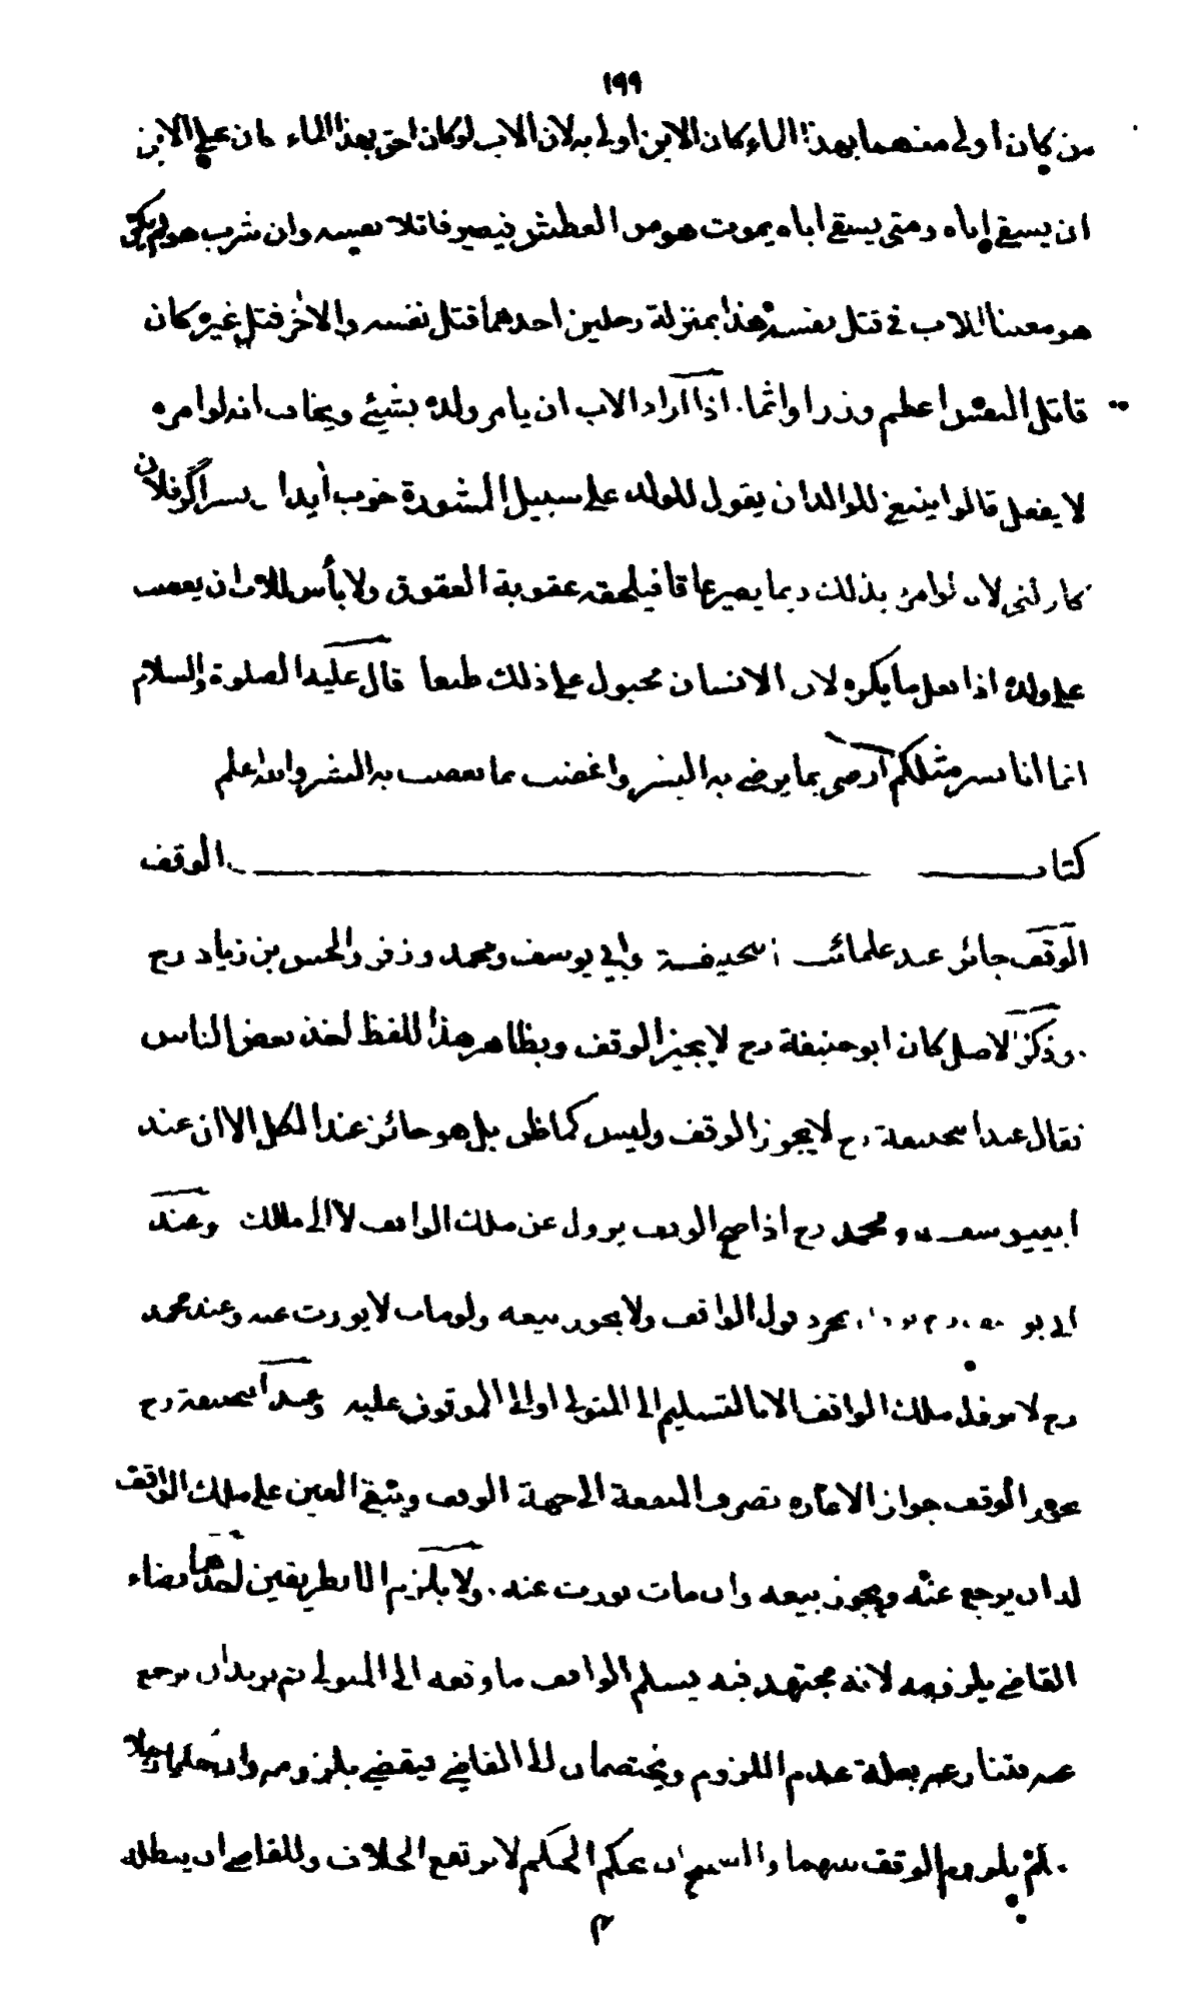 ١٩٩
من كان اولى منهما بهذا الماء كان الابن اولى به لان الاب لو كان احق بهذا الماء كان على الابن
ان يسقي اباه ومتى يسقي اباه يموت هو من العطش فيصير قاتلا نفسه وان شرب هو لم يكن
هو معينا للاب في قتل نفسه هذا بمنزلة رجلين احدهما قتل نفسه والاخر قتل غيره كان
قاتل النفس اعظم وزرا واثما. اذا اراد الاب ان يامر ولده بشيئ ويخاف انه لو امره
لا يفعل قالوا ينبغي للوالد ان يقول للولد على سبيل المشورة خوب آيد اي پسر اگر فلان
كار كني لانه لو امره بذلك ربما يصير عاقا فيلحقه عقوبة العقوق ولا بأس للاب ان يغضب
على ولده اذا فعل ما يكره لان الانسان مجبول على ذلك طبعا قال عليه الصلوة والسلام
انما انا بشر مثلكم ارضى بما يرضى به البشر واغضب بما يغضب به البشر والله اعلم
كتاب الوقف
الوقف جائز عند علمائنا ابيحنيفة وابي يوسف ومحمد وزفر والحسن بن زياد رح
وذكر الاصل كان ابو حنيفة رح لا يجيز الوقف وبظاهر هذا اللفظ اخذ بعض الناس
فقال عند ابيحنيفة رح لا يجوز الوقف وليس كما ظن بل هو جائز عند الكل الا ان عند
ابييوسف ومحمد رح اذا صح الوقف يزول عن ملك الواقف لا الى مالك وعند
ابي يو بمجرد قول الواقف ولا يجوز بيعه ولو مات لا يورث عنه وعند محمد
رح لا يزول ملك الواقف الا بالتسليم الى المتولي او الى الموقوف عليه وعند ابيحنيفة رح
يجوز الوقف جواز الاعارة تصرف المنفعة الى جهة الوقف ويبقي العين على ملك الواقف
له ان يرجع عنه ويجوز بيعه وان مات يورث عنه. ولا يلزم الا بطريقين احدهما قضاء
القاضي بلزومه لانه مجتهد فيه يسلم الواقف ما وقفه الى المتولي ثم يريد ان يرجع
عنه فتنازعه بعلة عدم اللزوم ويختصمان الى القاضي فيقضي بلزومه وان حكما رجلا
بلزوم الوقف بينهما والصحيح ان بحكم الحكم لا يرتفع الخلاف وللقاضي ان يبطله